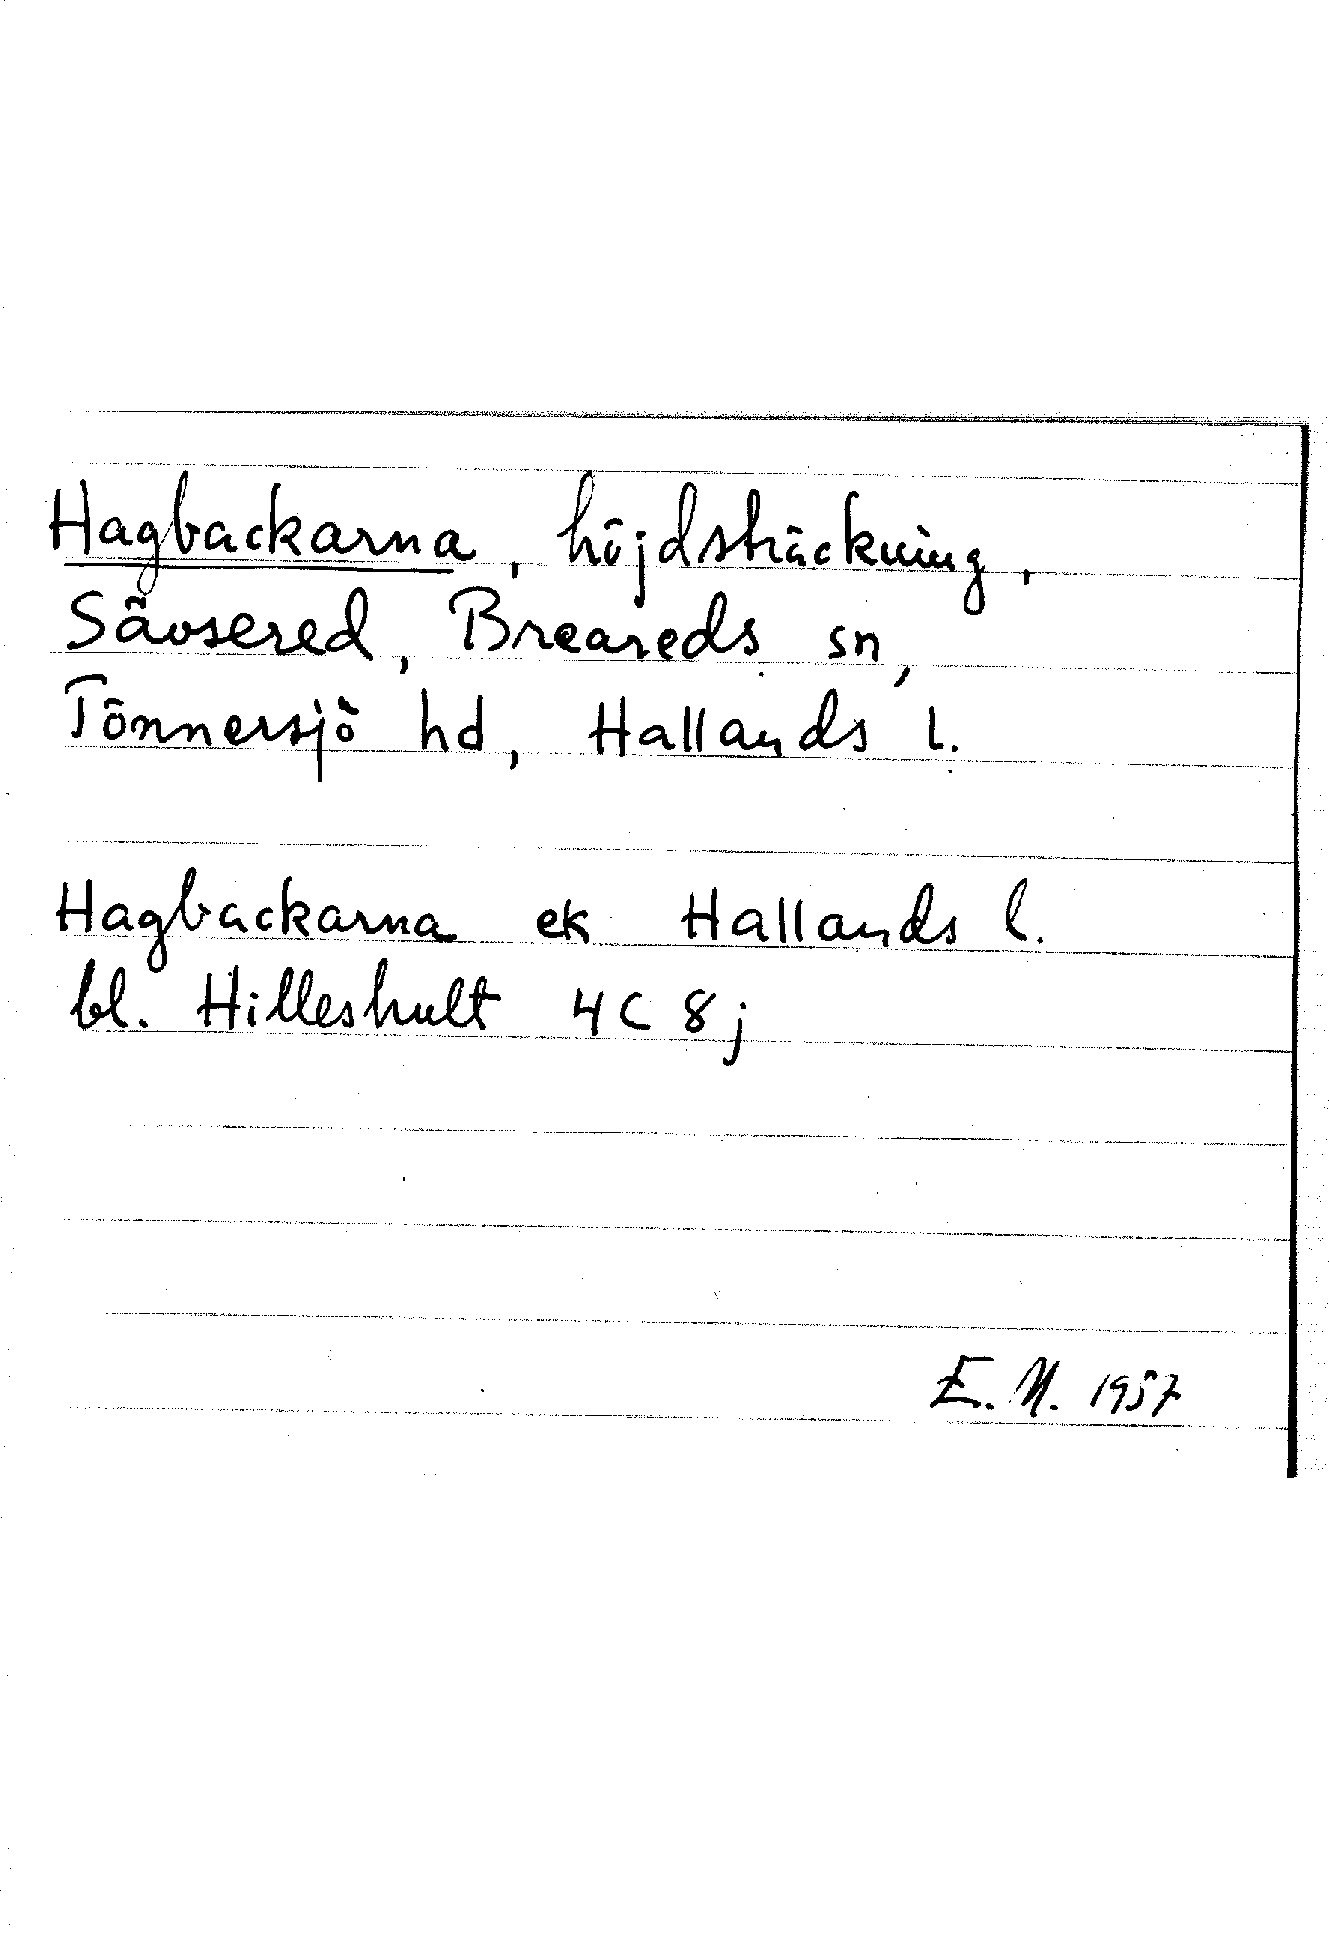 Hagbackarna, höjdsträckning,
Sävsered, Breareds sn,
Tönnersjö hd, Hallands l.
Hagbackarna ek Hallands l.
bl. Hilleshult 4C 8j
E.N. 1957